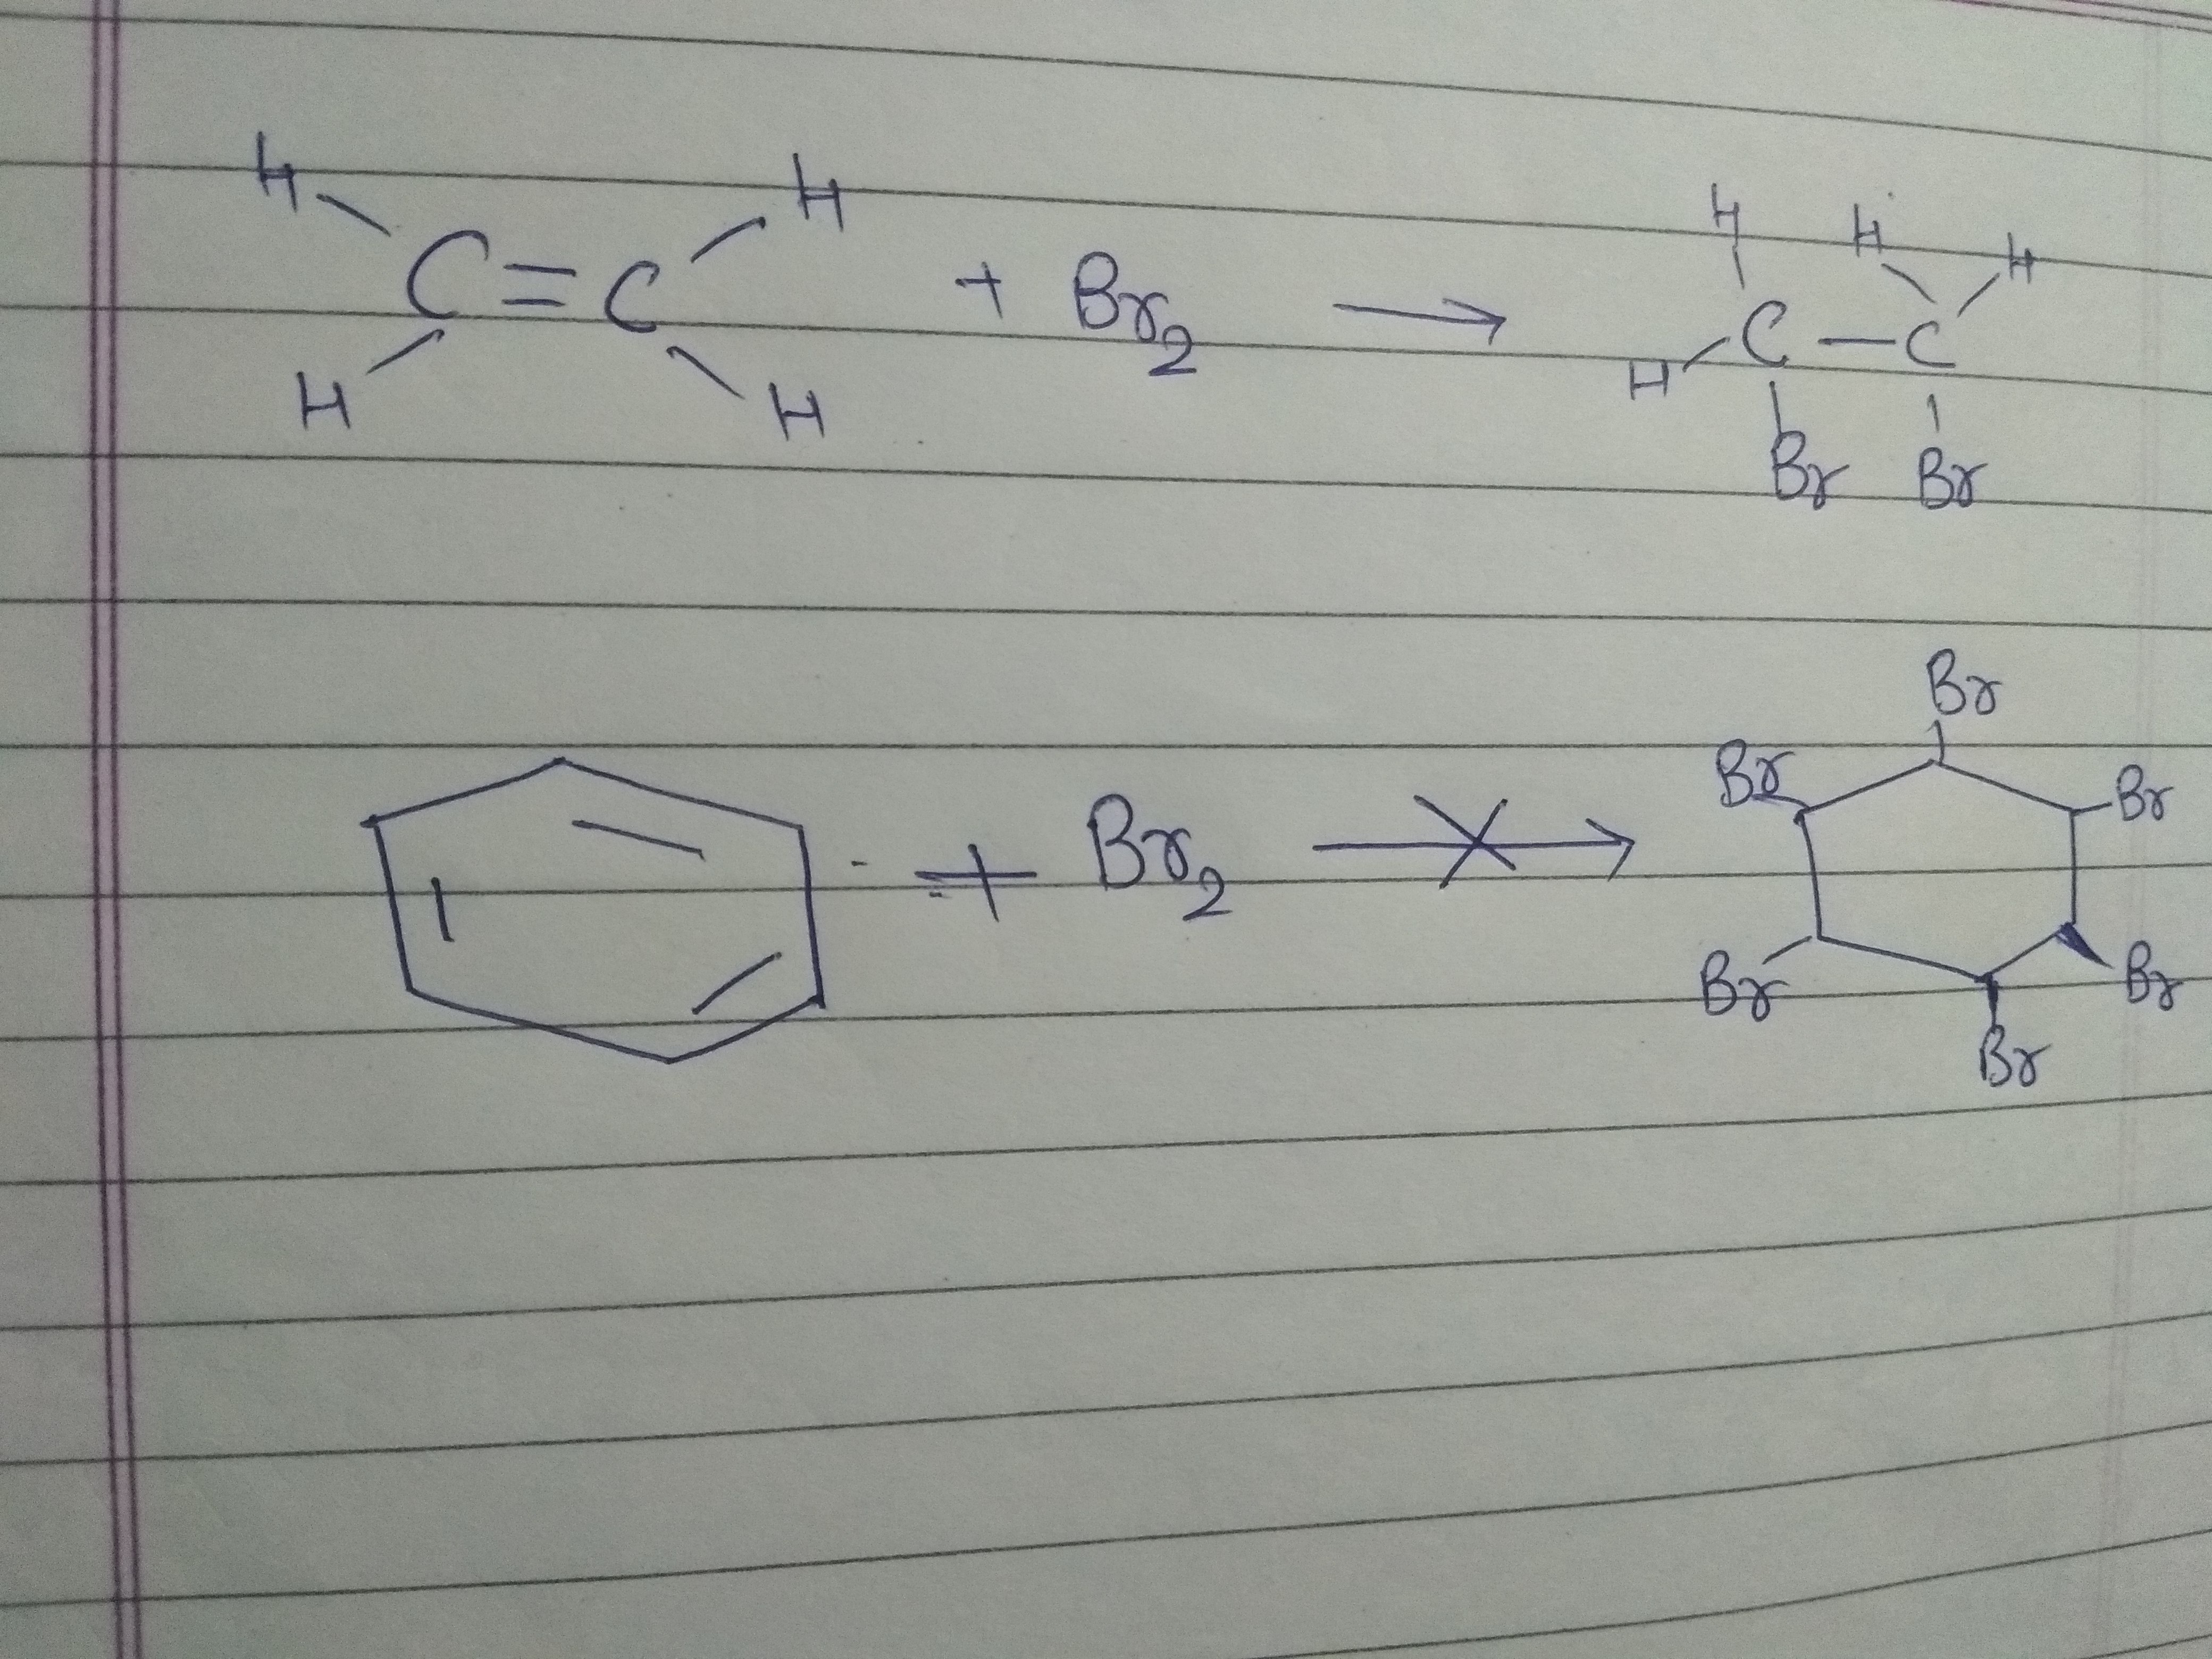 H H H H H
C=C + Br2 → H C — C
H H Br Br
Br
Br Br
+ Br2 →
Br Br
Br